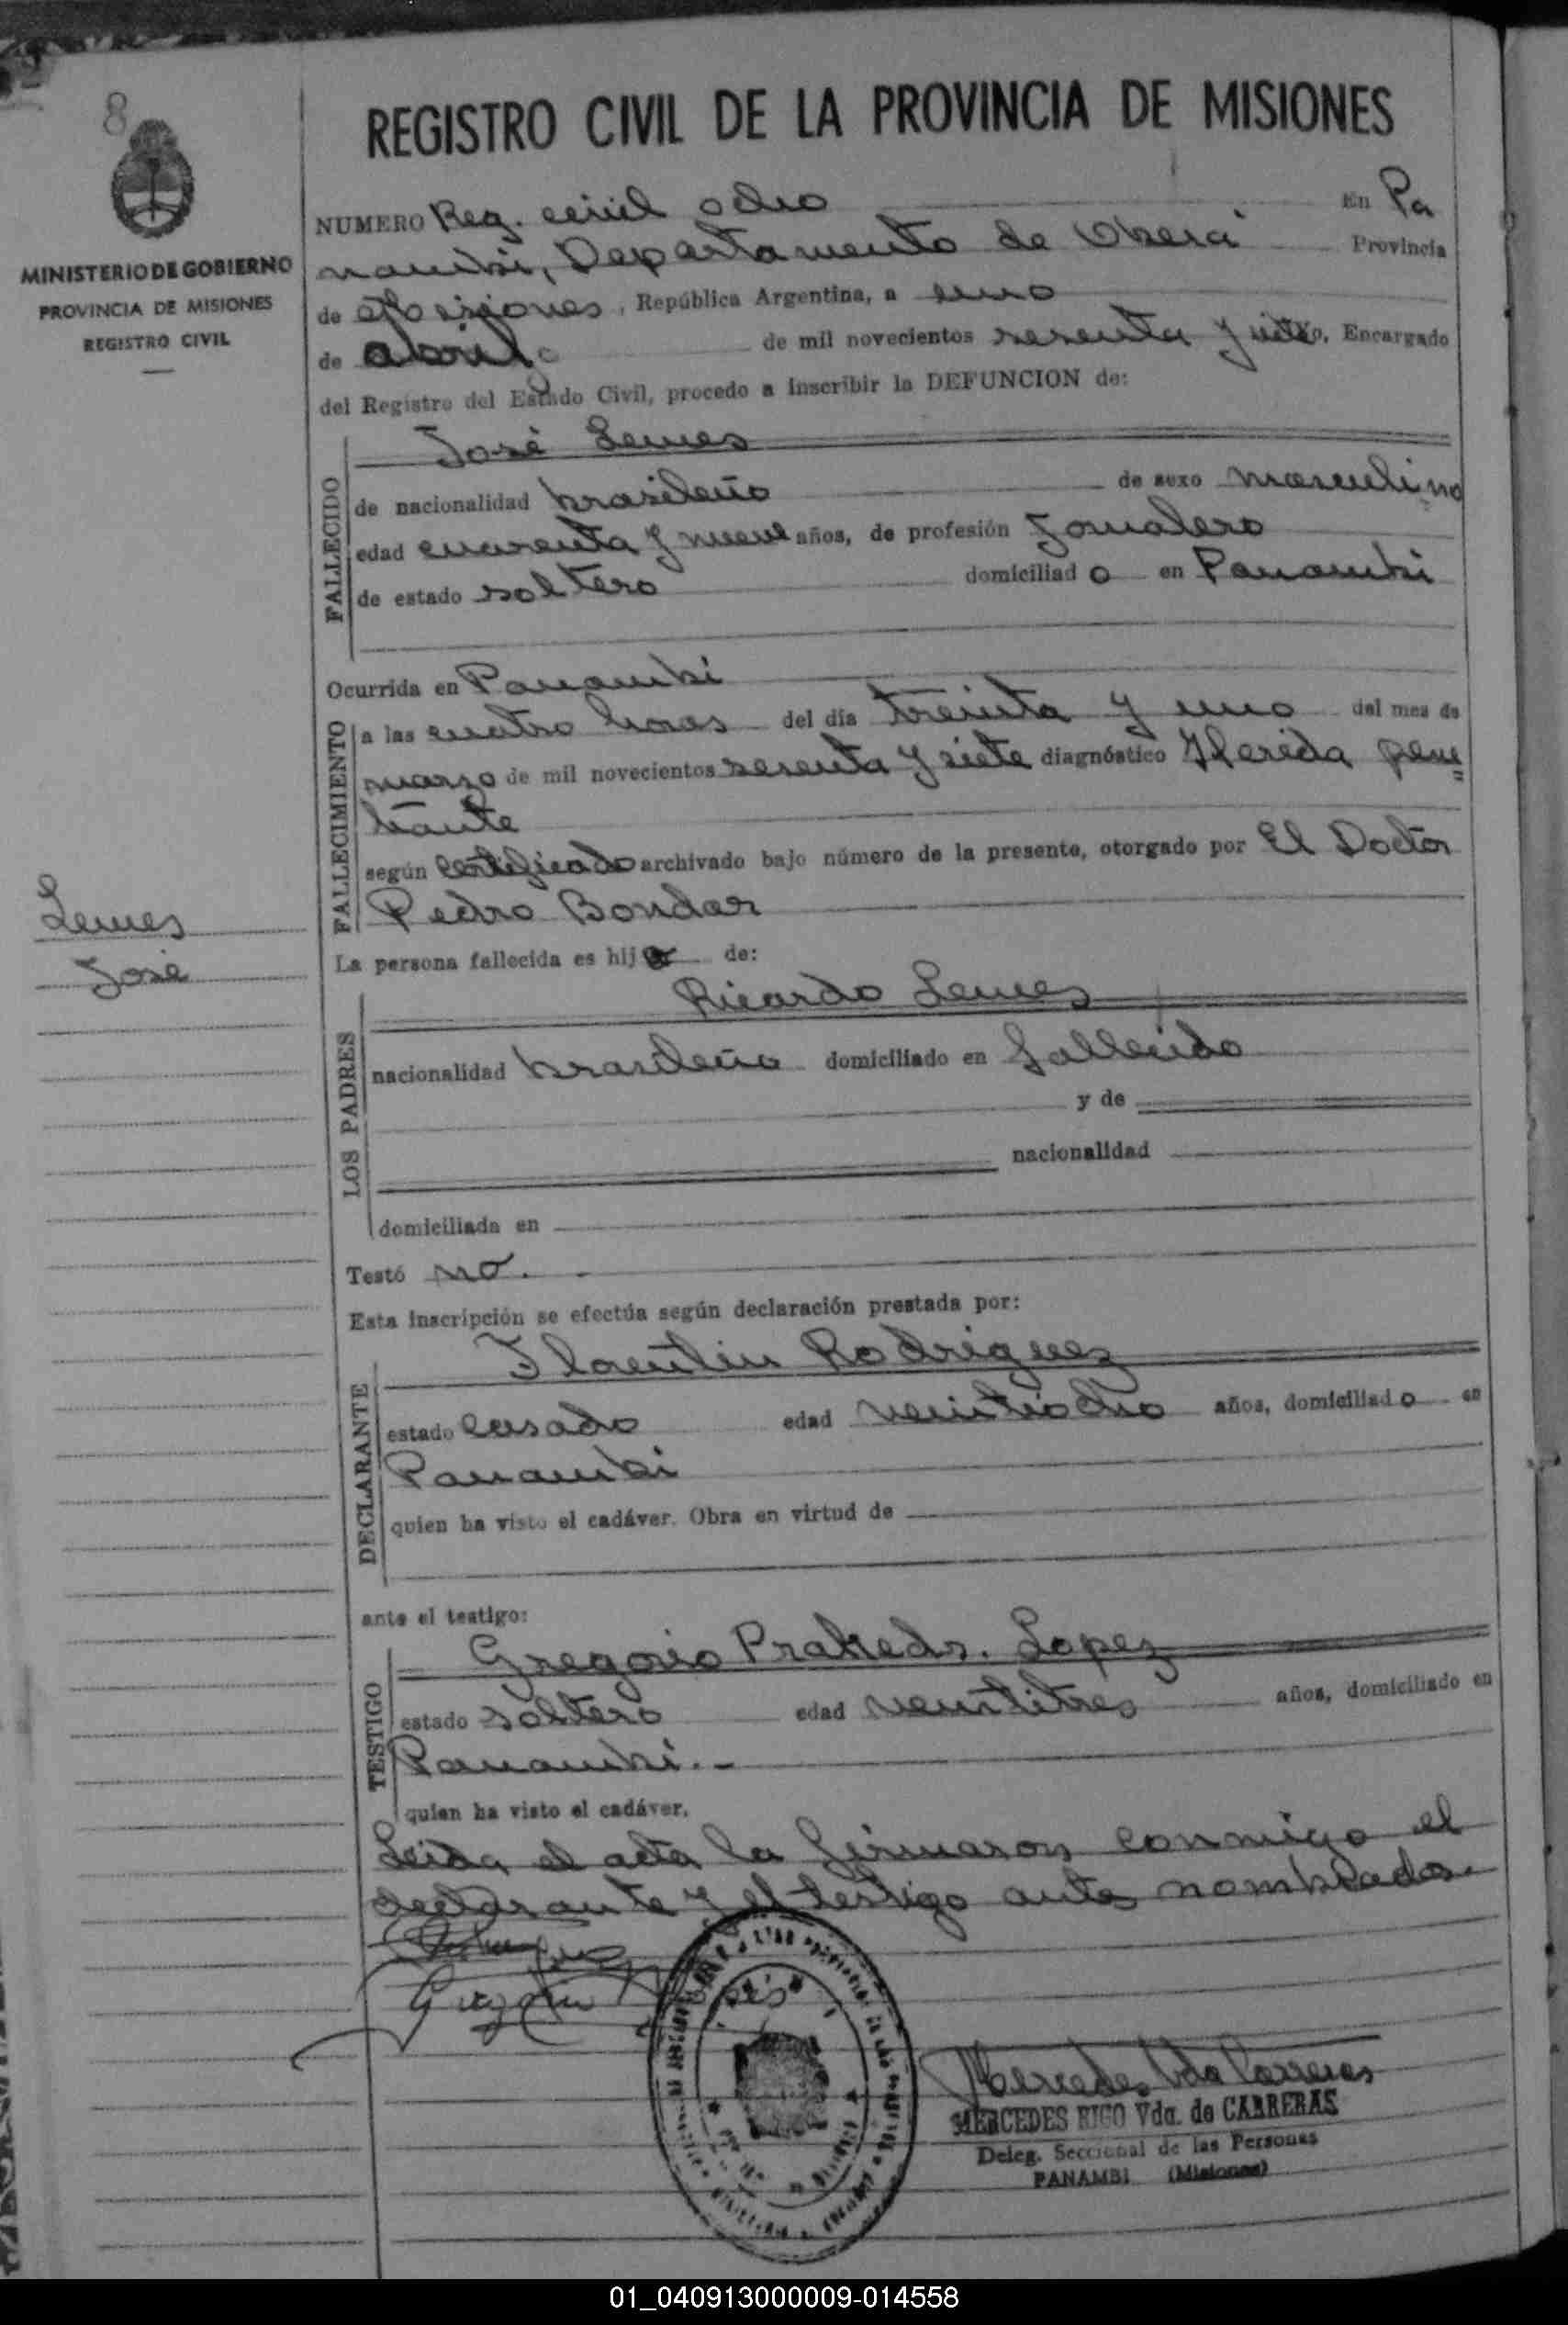 8
MINISTERIO DE GOBIERNO
PROVINCIA DE MISIONES
REGISTRO CIVIL
REGISTRO CIVIL DE LA PROVINCIA DE MISIONES
NUMERO Reg. civil ocho En Pa
nambi, Departamento de Oberá Provincia
de Misiones, República Argentina, a uno
de abril de mil novecientos sesenta y siete, Encargado
del Registro del Estado Civil, procedo a inscribir la DEFUNCION de:
FALLECIDO
José Lemes
de nacionalidad brasileño de sexo masculino
edad cuarenta y nueve años, de profesión Jornalero
de estado soltero domiciliado en Panambi
Ocurrida en Panambi
FALLECIMIENTO
a las cuatro horas del día treinta y uno del mes de
marzo de mil novecientos sesenta y siete diagnóstico Herida pene=
trante
según certificado archivado bajo número de la presente, otorgado por El Doctor
Pedro Bondar
Lemes
José
La persona fallecida es hijo de:
LOS PADRES
Ricardo Lemes
nacionalidad brasileño domiciliado en fallecido
y de
nacionalidad
domiciliada en
Testó no.
Esta inscripción se efectúa según declaración prestada por:
DECLARANTE
Florentin Rodriguez
estado casado edad veintiocho años, domiciliado en
Panambi
quien ha visto el cadáver. Obra en virtud de
ante el testigo:
TESTIGO
Gregorio Lopez
estado soltero edad veintitres años, domiciliado en
Panambi.-
quien ha visto el cadáver.
Leida el acta la firmaron conmigo el
declarante y el testigo antes nombrados.
Mercedes Vda Carreras
MERCEDES RIGO Vda. de CARRERAS
Deleg. Seccional de las Personas
PANAMBI (Misiones)
01_040913000009-014558